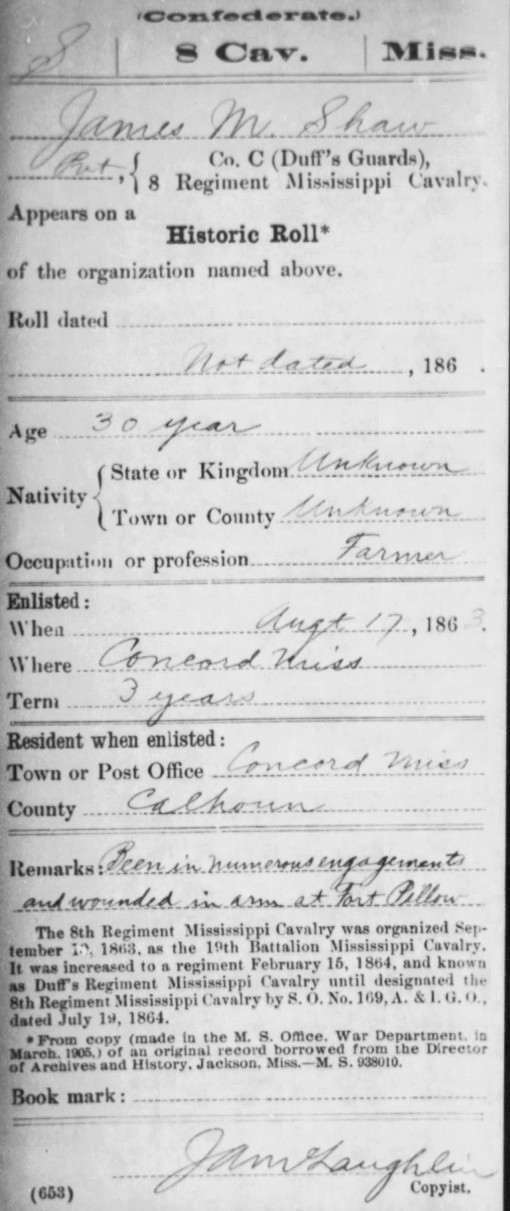 (Confederate.)
S | 8 Cav. | Miss.
James M. Shaw
Pvt, { Co. C (Duff's Guards),
8 Regiment Mississippi Cavalry.
Appears on a
Historic Roll*
of the organization named above.
Roll dated
Not dated, 186 .
Age 30 year
Nativity { State or Kingdom Unknown
Town or County Unknown
Occupation or profession Farmer
Enlisted:
When Augt 17, 1863.
Where Concord Miss
Term 3 years
Resident when enlisted:
Town or Post Office Concord Miss
County Calhoun
Remarks: Been in numerous engagements
and wounded in arm at Fort Pillow
The 8th Regiment Mississippi Cavalry was organized Sep-
tember 19, 1863, as the 19th Battalion Mississippi Cavalry.
It was increased to a regiment February 15, 1864, and known
as Duff's Regiment Mississippi Cavalry until designated the
8th Regiment Mississippi Cavalry by S. O. No. 169, A. & I. G. O.,
dated July 19, 1864.
*From copy (made in the M. S. Office, War Department, in
March, 1905,) of an original record borrowed from the Director
of Archives and History, Jackson, Miss.—M. S. 938010.
Book mark:
J A McLaughlin
(653) Copyist.